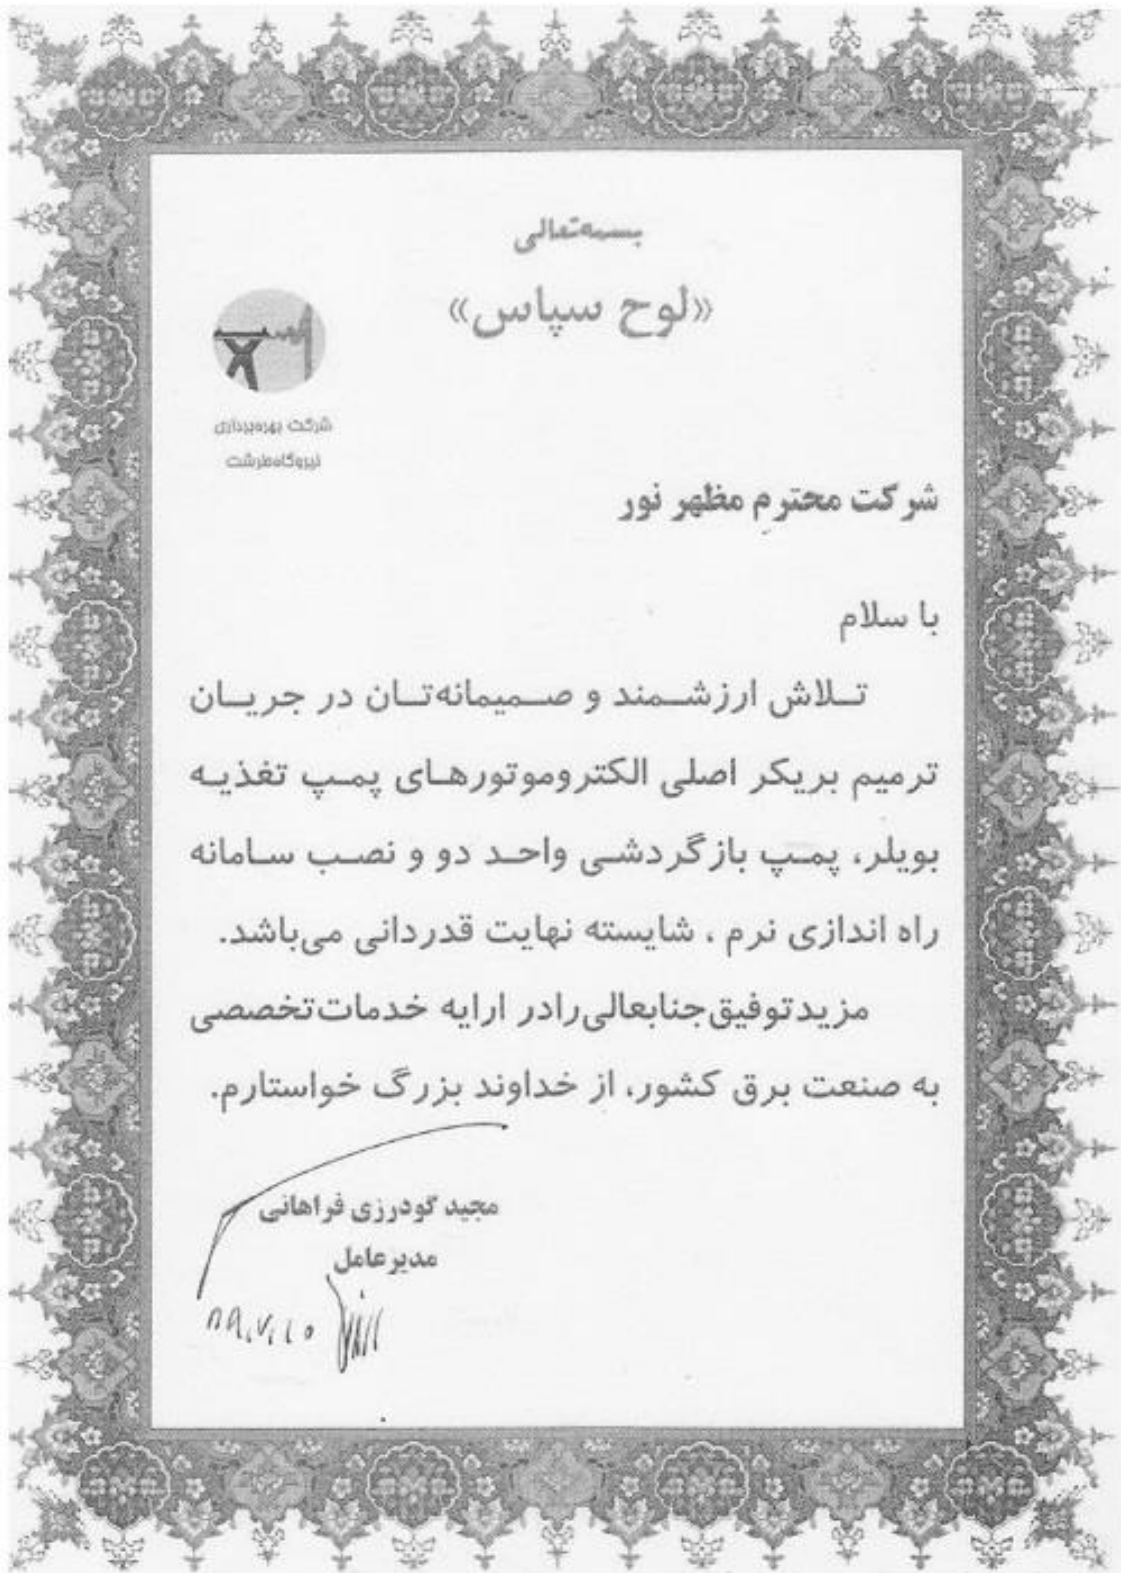 بسمه‌تعالی
«لوح سپاس»
شرکت بهره‌برداری
نیروگاه طرشت
شرکت محترم مظهر نور
با سلام
تـلاش ارزشـمند و صـمیمانه‌تـان در جریـان
ترمیم بریکر اصلی الکتروموتورهـای پمـپ تغذیـه
بویلر، پمـپ بازگردشـی واحـد دو و نصـب سـامانه
راه اندازی نرم ، شایسته نهایت قدردانی می‌باشد.
مزید توفیق جنابعالی را در ارایه خدمات تخصصی
به صنعت برق کشور، از خداوند بزرگ خواستارم.
مجید گودرزی فراهانی
مدیرعامل